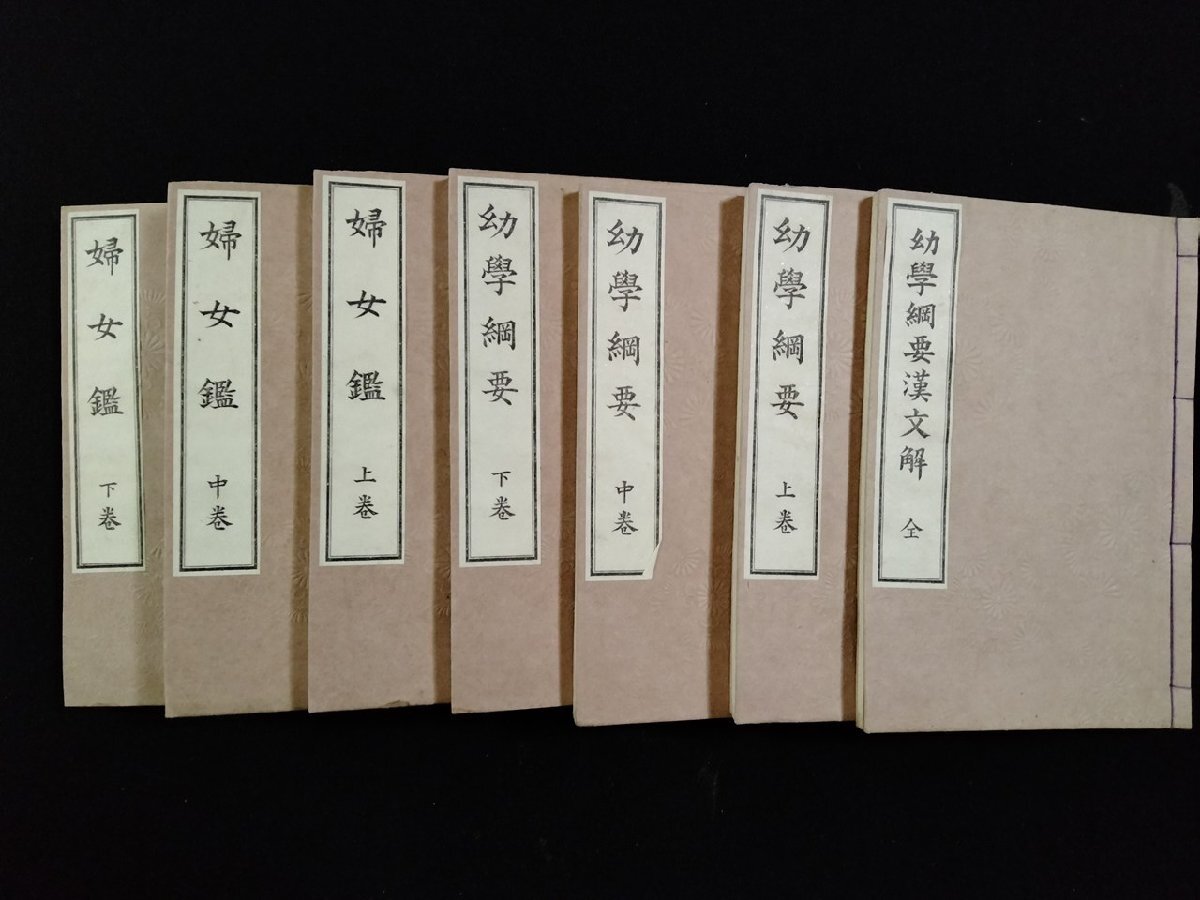 幼學綱要漢文解 全
幼學綱要 上卷
幼學綱要 中卷
幼學綱要 下卷
婦女鑑 上卷
婦女鑑 中卷
婦女鑑 下卷